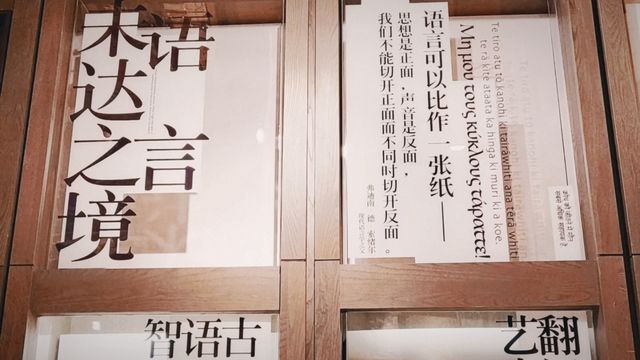 语言
未达之境
Te tiro atu tō kanohi ki tairāwhiti ana tērā whiti
te rā kite ataata ka hinga ki muri ki a koe.
Μη μου τους κυκλους τάραττε!
语言可以比作一张纸——
思想是正面，声音是反面，
我们不能切开正面而不同时切开反面。
弗迪南 德 索绪尔
现代语言学之父
古
语
智
翻
艺